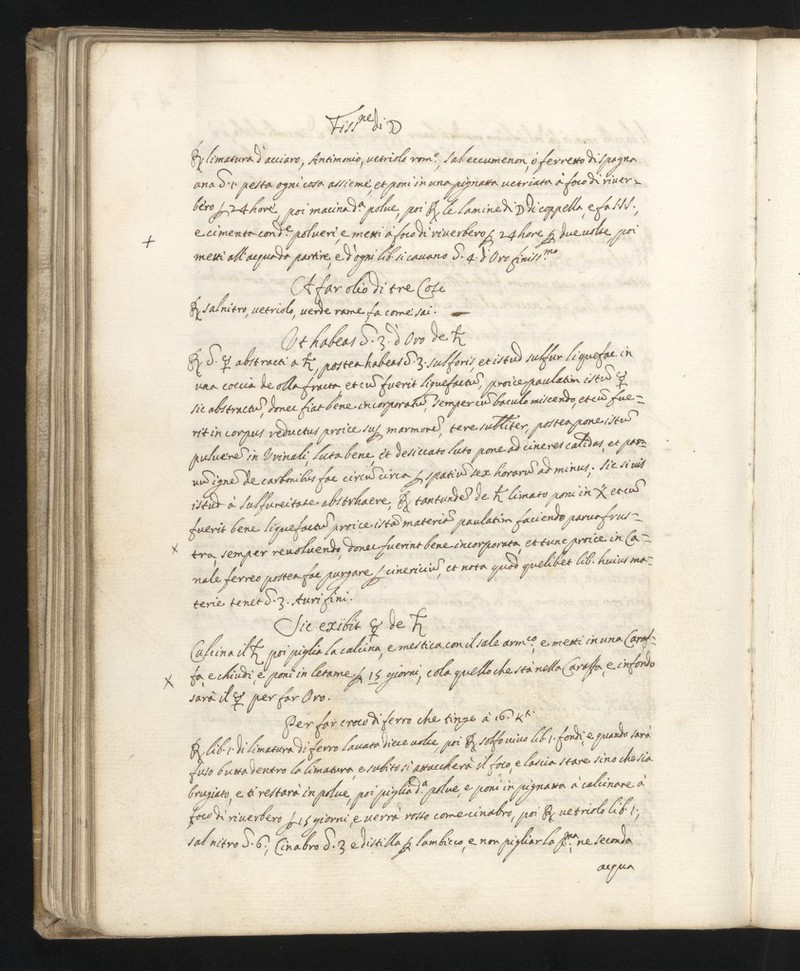 Fiss.ne di ☽
℞ limatura d'acciaro, Antimonio, vetriolo rom.o, sal eccumenon, ò ferretto di spagna
una ℥. 1. pesta ogni cosa assieme, et poni in una pignatta vetriata à foco di river=
bero ꝑ 24 hore, poi macina d.a polve, poi ℞ le lamine di ☽ di coppella, e fa SSS.,
+ e cimenta con d.e polveri e metti à foco di riverbero ꝑ 24 hore ꝑ due volte, poi
metti all'acqua da partire, e d'ogni lib. si cavano ℥. 4. d'Oro finiss.mo
A far olio di tre Cose
℞ salnitro, vetriolo, verde rame fa come sai.
Ut habeas ℥. 3. d'Oro de ♄
℞ ℥. ☿ abstracti a ♄, postea habeas ℥. 3. sulforis, et istud sulfur liquefac in
una coccia de olla fracta et cū fuerit liquefactū, proice paulatim istū ☿
sic abstractū, donec fiat bene incorporatū, semper cū baculo miscendo, et cū fue=
rit in corpus reductus proice suꝑ marmore, tere subtiliter, postea pone istū
pulverē in Urinali, luta bene, et desiccato luto pone ad cineres calidas, et par=
vū ignē de carbonibus fac circū circa ꝑ spatiū sex horarū ad minus; sic si vis
istud à sulfureitate abstrhaere, ℞ tantundē de ♄ limato poni in et cū
fuerit bene liquefactū proice istā materiā paulatim faciendo parva frus=
x tra, semper revolvendo, donec fuerint bene incorporata, et tunc proice in Ca=
nale ferreo postea fac purgare ꝑ cinericiū, et nota quod quelibet lib. huius ma=
terie tenet ℥. 3. Auri fini.
Sic exibit ☿ de ♄
Calcina il ♄ poi piglia la calcina, e mestica con il sale arm.co, e metti in una Caraf=
x fa, e chiudi, e poni in letame ꝑ 15 giorni, cola quello che stà nella Caraffa, e in fondo
sarà il ☿ per far Oro.
Per far croco di ferro che tinge à 16. K.ti
℞ lib. 1. di limatura di ferro lavata diece volte, poi ℞ solfo vivo lib. 1. fondi, e quando sarà
fuso butta dentro la limatura, e subito si attaccherà il foco, e lascia stare sino che sia
brugiato, e ti restarà in polve, poi piglia d.a polve, e poni in pignatta à calcinare à
foco di riverbero ꝑ 15 giorni, e verrà rosso come cinabro, poi ℞ vetriolo lib. 1.,
sal nitro ℥. 6., Cinabro ℥. 3 e distilla ꝑ lambicco, e non pigliar la p.ma, ne seconda
acqua